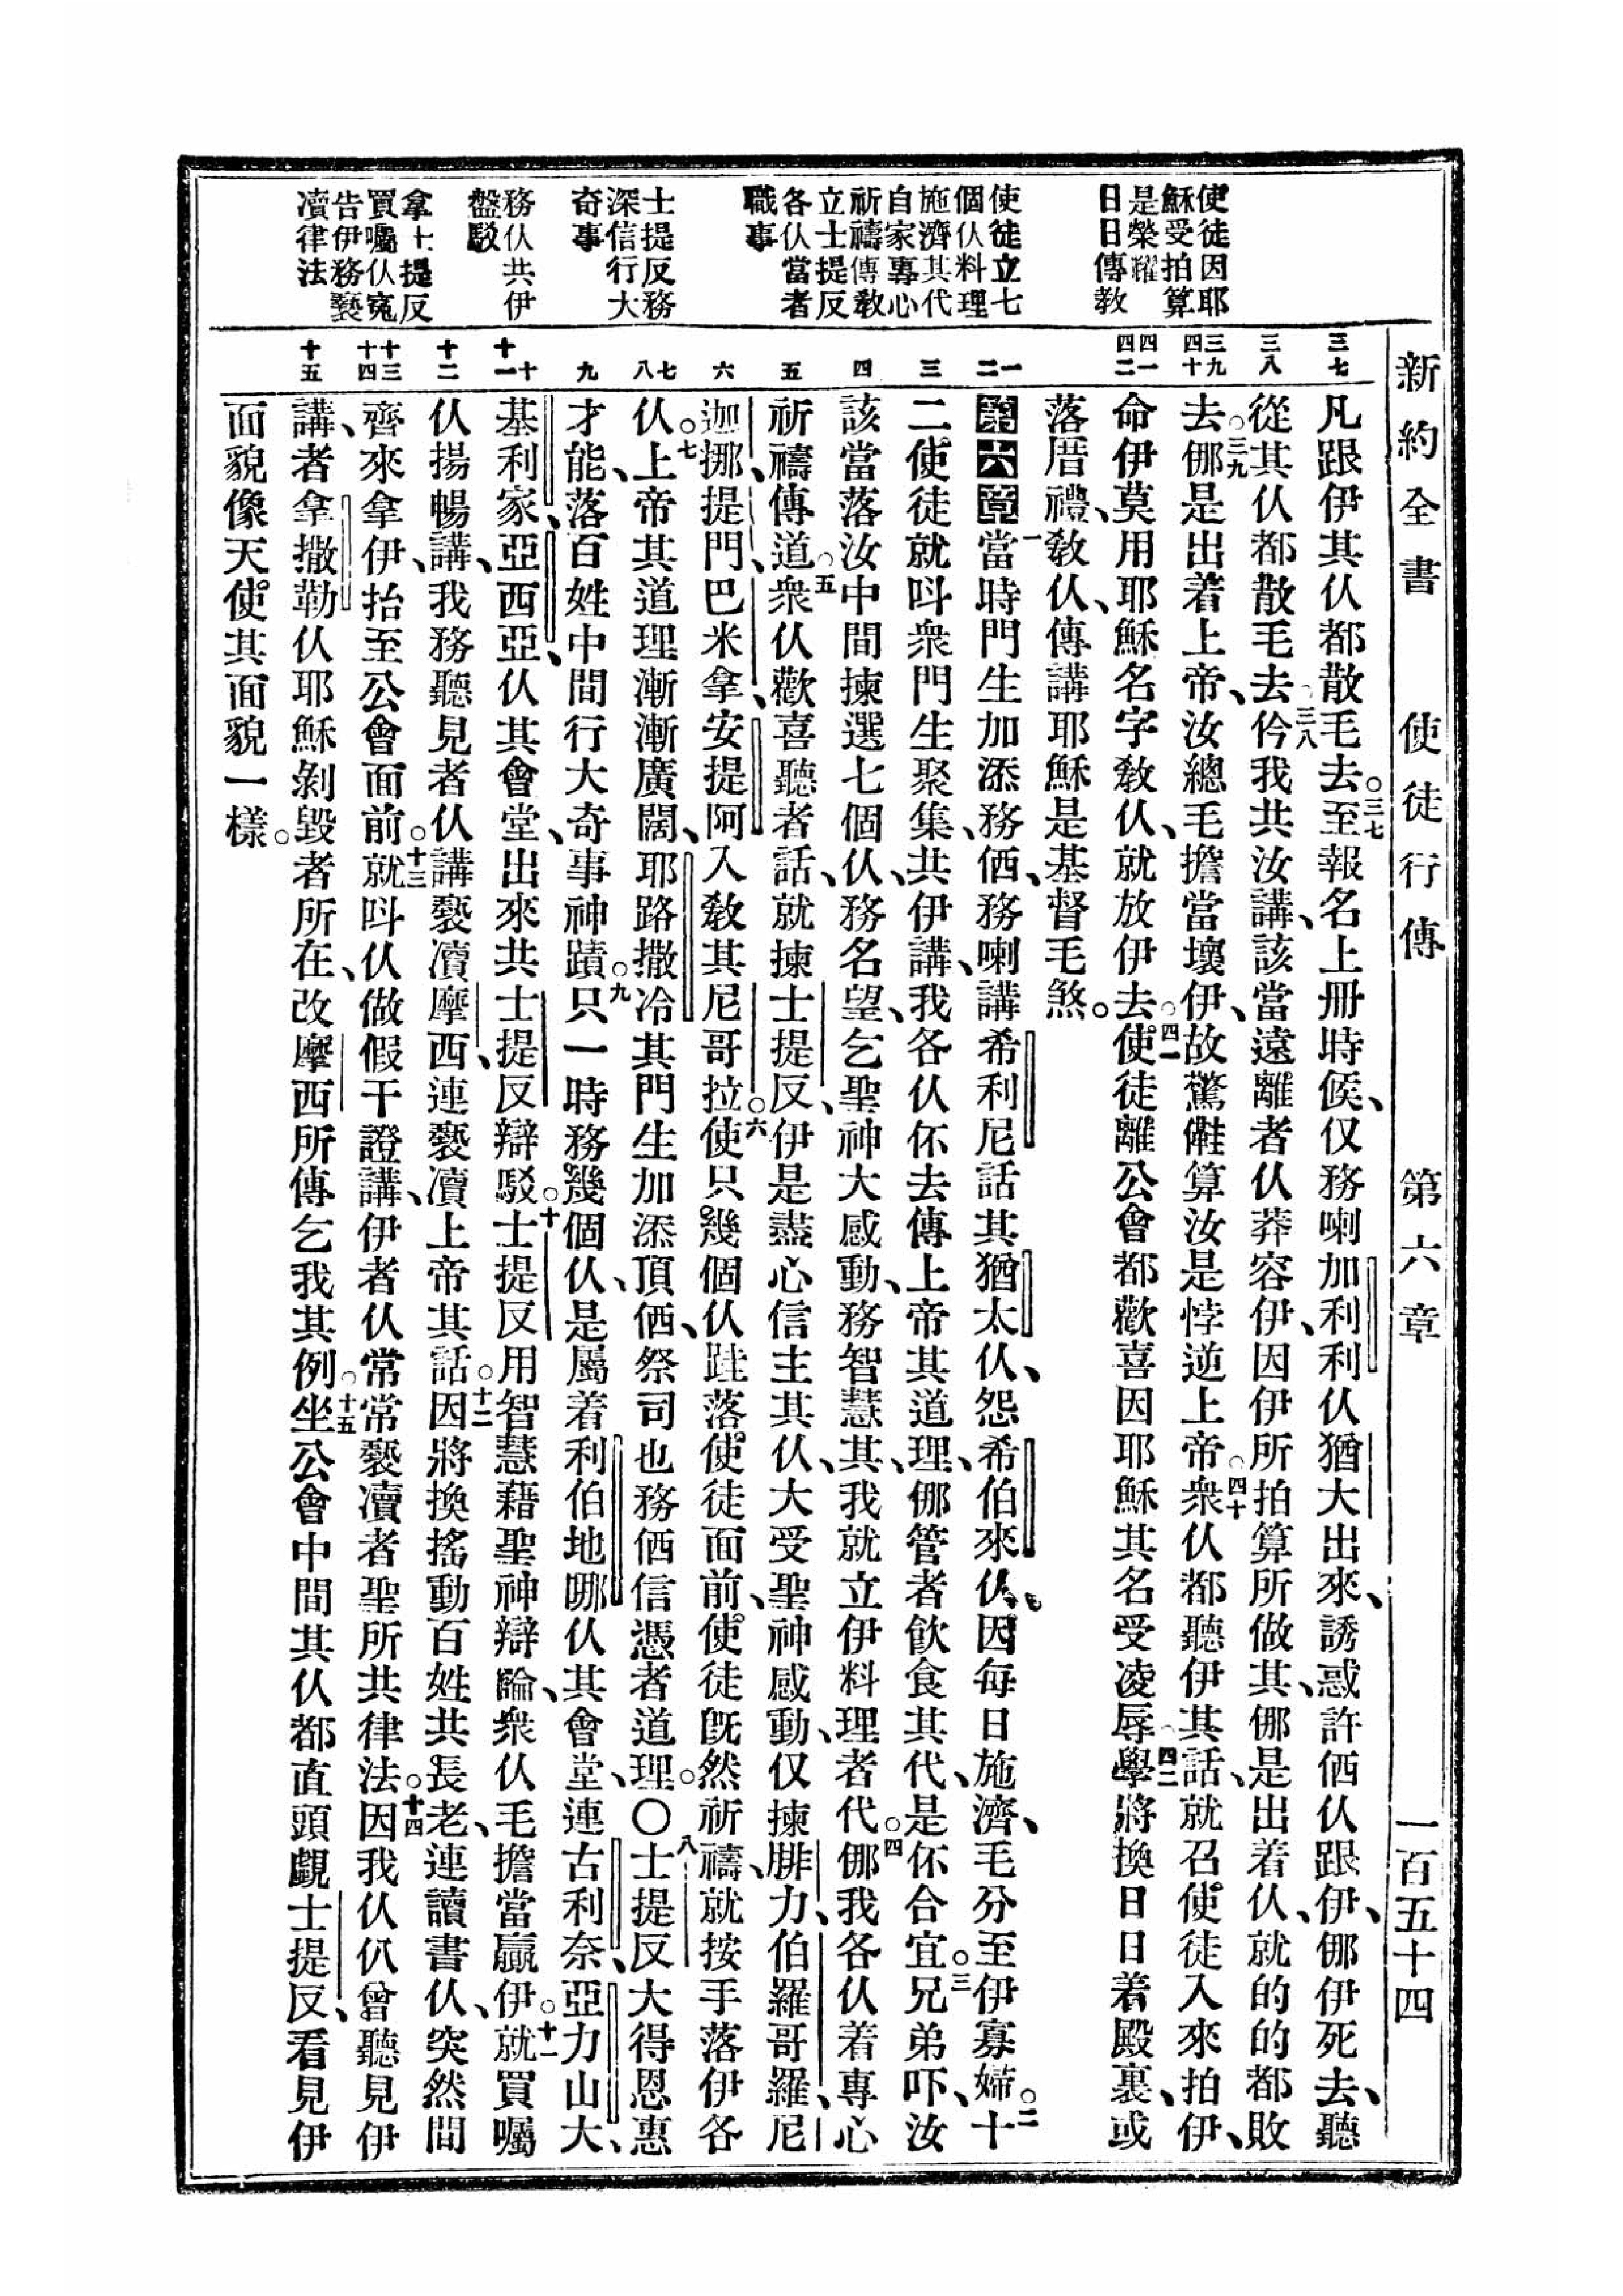 新約全書 使徒行傳 第六章 一百五十四
使徒因耶
穌受拍算
是榮耀
日日傳教
使徒立七
個仈料理
施濟其代
自家專心
祈禱傳教
立士提反
各仈當者
職事
士提反務
深信行大
奇事
務仈共伊
盤駁
拿士提反
買囑仈寃
告伊務褻
瀆律法
三七
三八
三九
四十
四一
四二
一
二
三
四
五
六
七
八
九
十
十一
十二
十三
十四
十五
凡跟伊其仈都散毛去。三七至報名上冊時候、仅務喇加利利仈猶大出來、誘惑許𠀾仈跟伊、㑚伊死去、聽
從其仈都散毛去○三八衿我共汝講、該當遠離者仈莽容伊、因伊所拍算所做其、㑚是出着仈、就的的都敗
去○三九㑚是出着上帝、汝總毛擔當壞伊、故驚㒲算汝是悖逆上帝○四十衆仈都聽伊其話、就召使徒入來拍伊、
命伊莫用耶穌名字教仈、就放伊去○四一使徒離公會都歡喜因耶穌其名受凌辱○四二學將換日日着殿裏、或
落厝禮、教仈、傳講耶穌是基督毛煞。
第六章一當時門生加添務𠀾、務喇講希利尼話其猶太仈、怨希伯來仈、因每日施濟、毛分至伊寡婦。二十
二使徒就呌衆門生聚集、共伊講、我各仈伓去傳上帝其道理、㑚管者飲食其代、是伓合宜。三兄弟吓、汝
該當落汝中間揀選七個仈、務名望、乞聖神大感動、務智慧其、我就立伊料理者代○四㑚我各仈着專心
祈禱傳道○五衆仈歡喜聽者話、就揀士提反、伊是盡心信主其仈、大受聖神感動、仅揀腓力、伯羅哥羅、尼
迦挪、提門、巴米拿、安提阿入教其尼哥拉○六使只幾個仈跬落使徒面前、使徒旣然祈禱、就按手落伊各
仈○七上帝其道理漸漸廣闊、耶路撒冷其門生加添頂𠀾、祭司也務𠀾信憑者道理。〇八士提反大得恩惠
才能、落百姓中間行大奇事神蹟○九只一時務幾個仈、是屬着利伯地哪仈其會堂、連古利奈、亞力山大、
基利家、亞西亞仈其會堂、出來共士提反辯駁○十士提反用智慧藉聖神辯論、衆仈毛擔當贏伊○十一就買囑
仈揚暢講、我務聽見者仈講褻瀆摩西、連褻瀆上帝其話○十二因將換搖動百姓共長老、連讀書仈、突然間
齊來拿伊、抬至公會面前○十三就呌仈做假干證講、伊者仈常常褻瀆者聖所共律法○十四因我仈仈曾聽見伊
講、者拿撒勒仈耶穌剝毀者所在、改摩西所傳乞我其例○十五坐公會中間其仈都直頭覷士提反、看見伊
面貌像天使其面貌一樣。